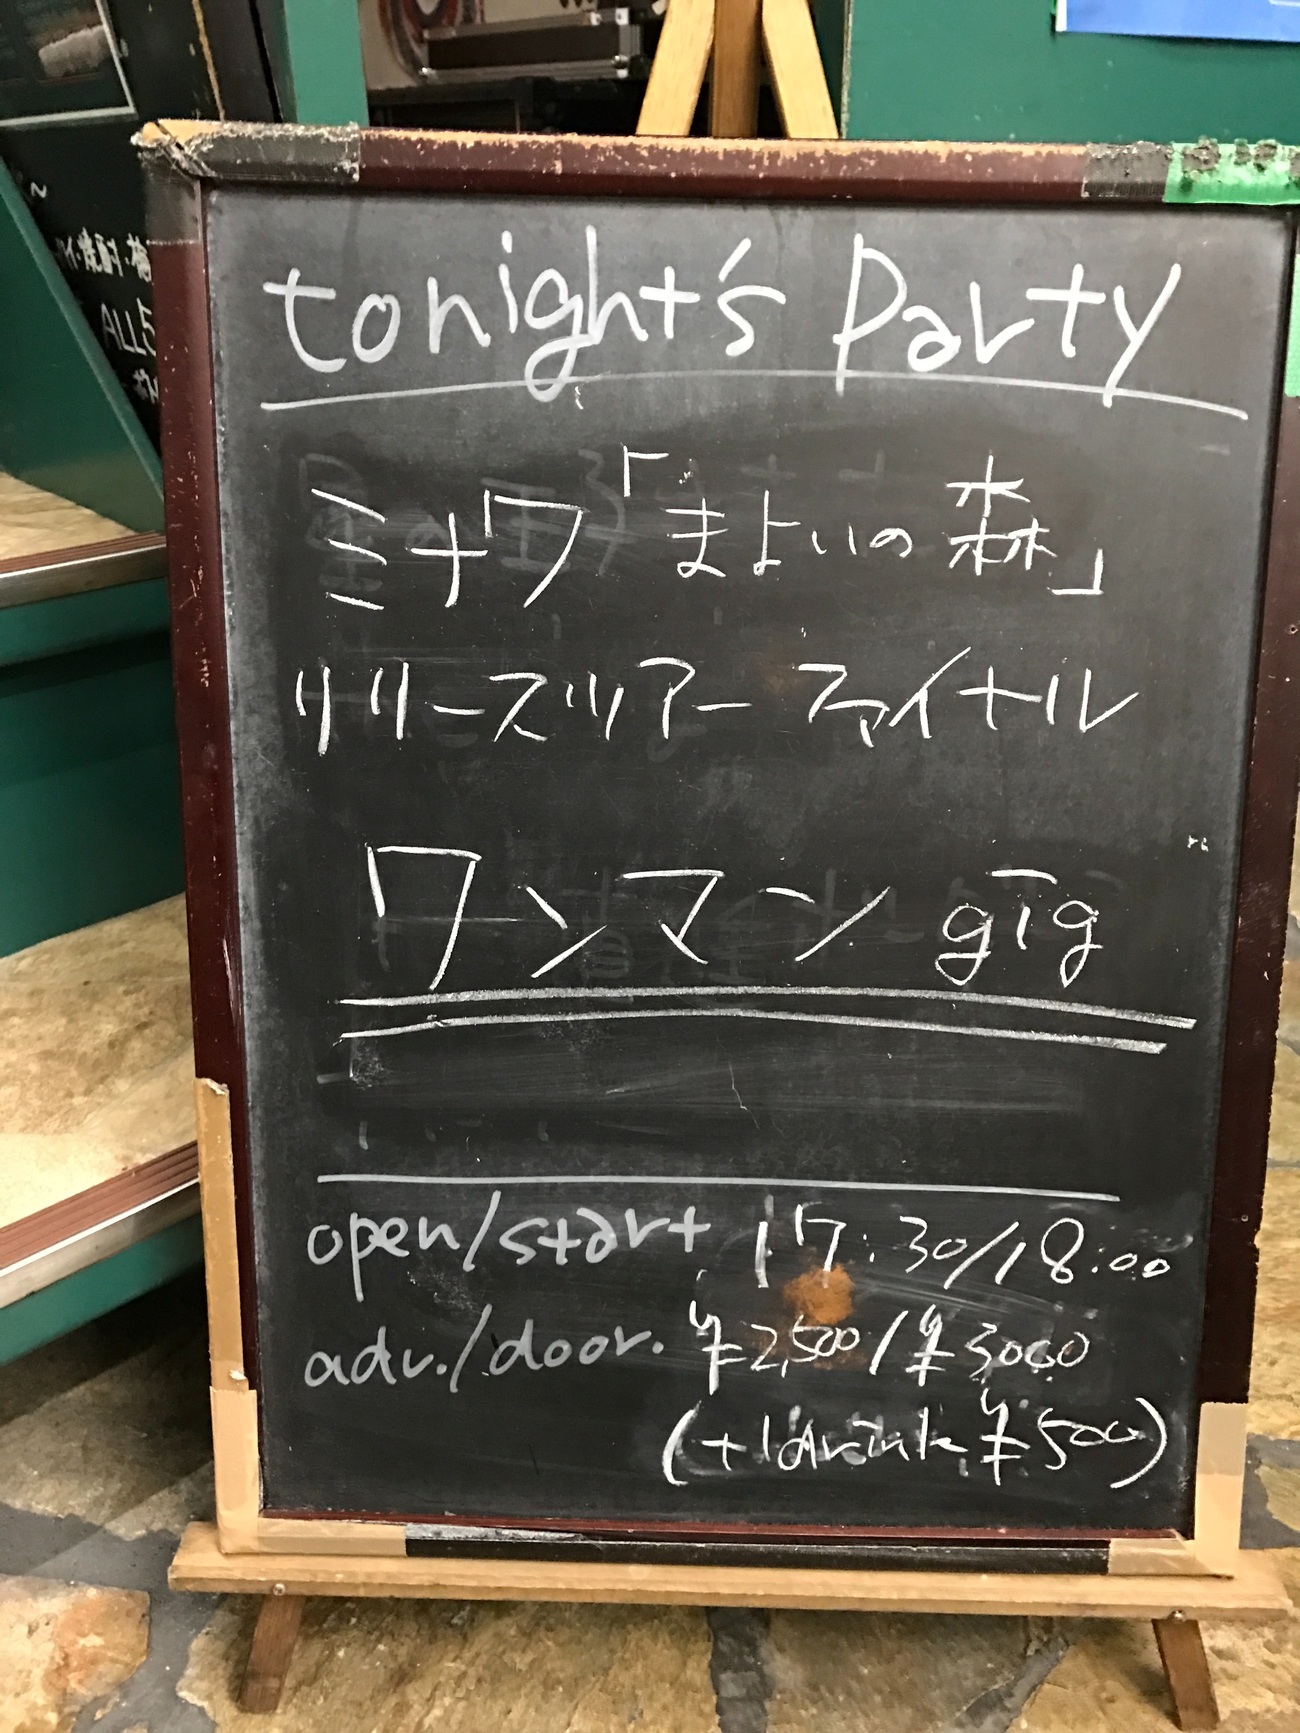 tonight's Party
ミナワ「まよいの森」
リリースツアー ファイナル
ワンマン gig
open/start 17:30/18:00
adv./door. ¥2,500/¥3000
(+1drink ¥500)
ALL5